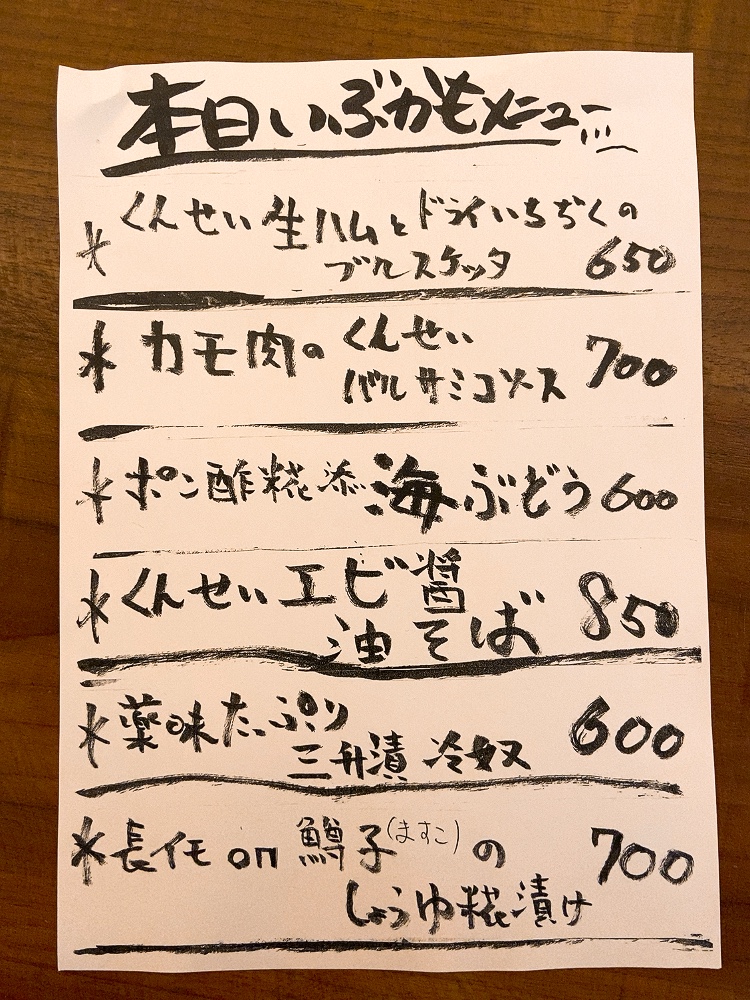 本日いぶかもメニュー
* くんせい生ハムとドライいちぢくの
ブルスケッタ 650
* カモ肉のくんせい
バルサミコソース 700
* ポン酢糀添海ぶどう 600
* くんせいエビ醤
油そば 850
* 薬味たっぷり
三升漬 冷奴 600
* 長イモon鱒子(ますこ)の 700
しょうゆ糀漬け